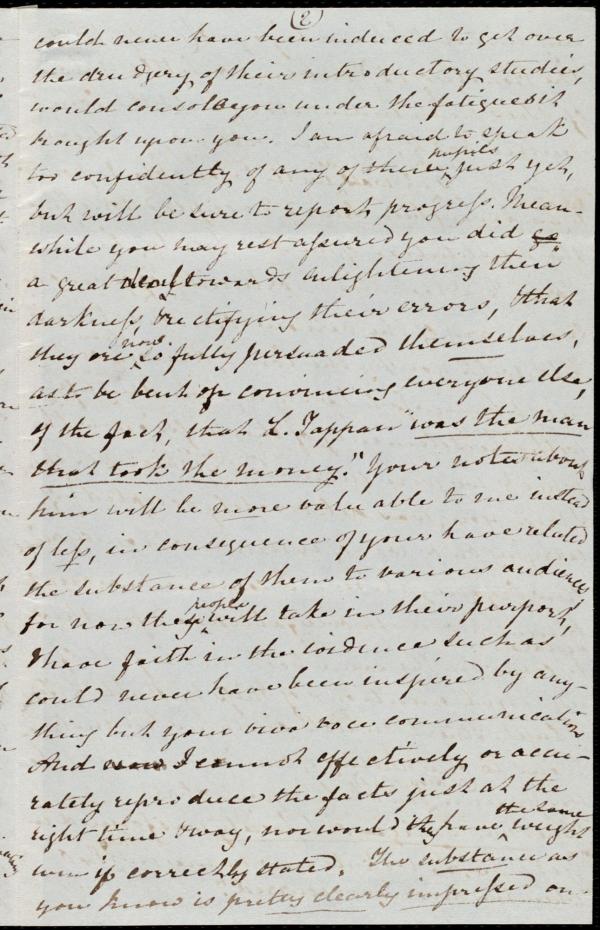 (2)
could never have been induced to get over
the drudgery of their introductory studies,
would console you under the fatigues it
brought upon you. I am afraid to speak
too confidently of any of these pupils just yet,
but will be sure to report progress. Mean-
while you may rest assured you did go
a great deal towards enlightening their
darkness, & rectifying their errors, & that
they are now so fully persuaded themselves,
as to be bent on convincing everyone else,
of the fact, that L. Tappan "was the man
that took the money." Your notes about
him will be more valuable to me instead
of less, in consequence of your have related
the substance of them to various audiences
for now they people will take in their purport,
& have faith in the evidence such as
could never have been inspired by any-
thing but your viva voce communications
And now I cannot effectively or accu-
rately reproduce the facts just at the
right time & way, nor would they have the same weight
even if correctly stated. The substance as
you know is pretty clearly impressed on